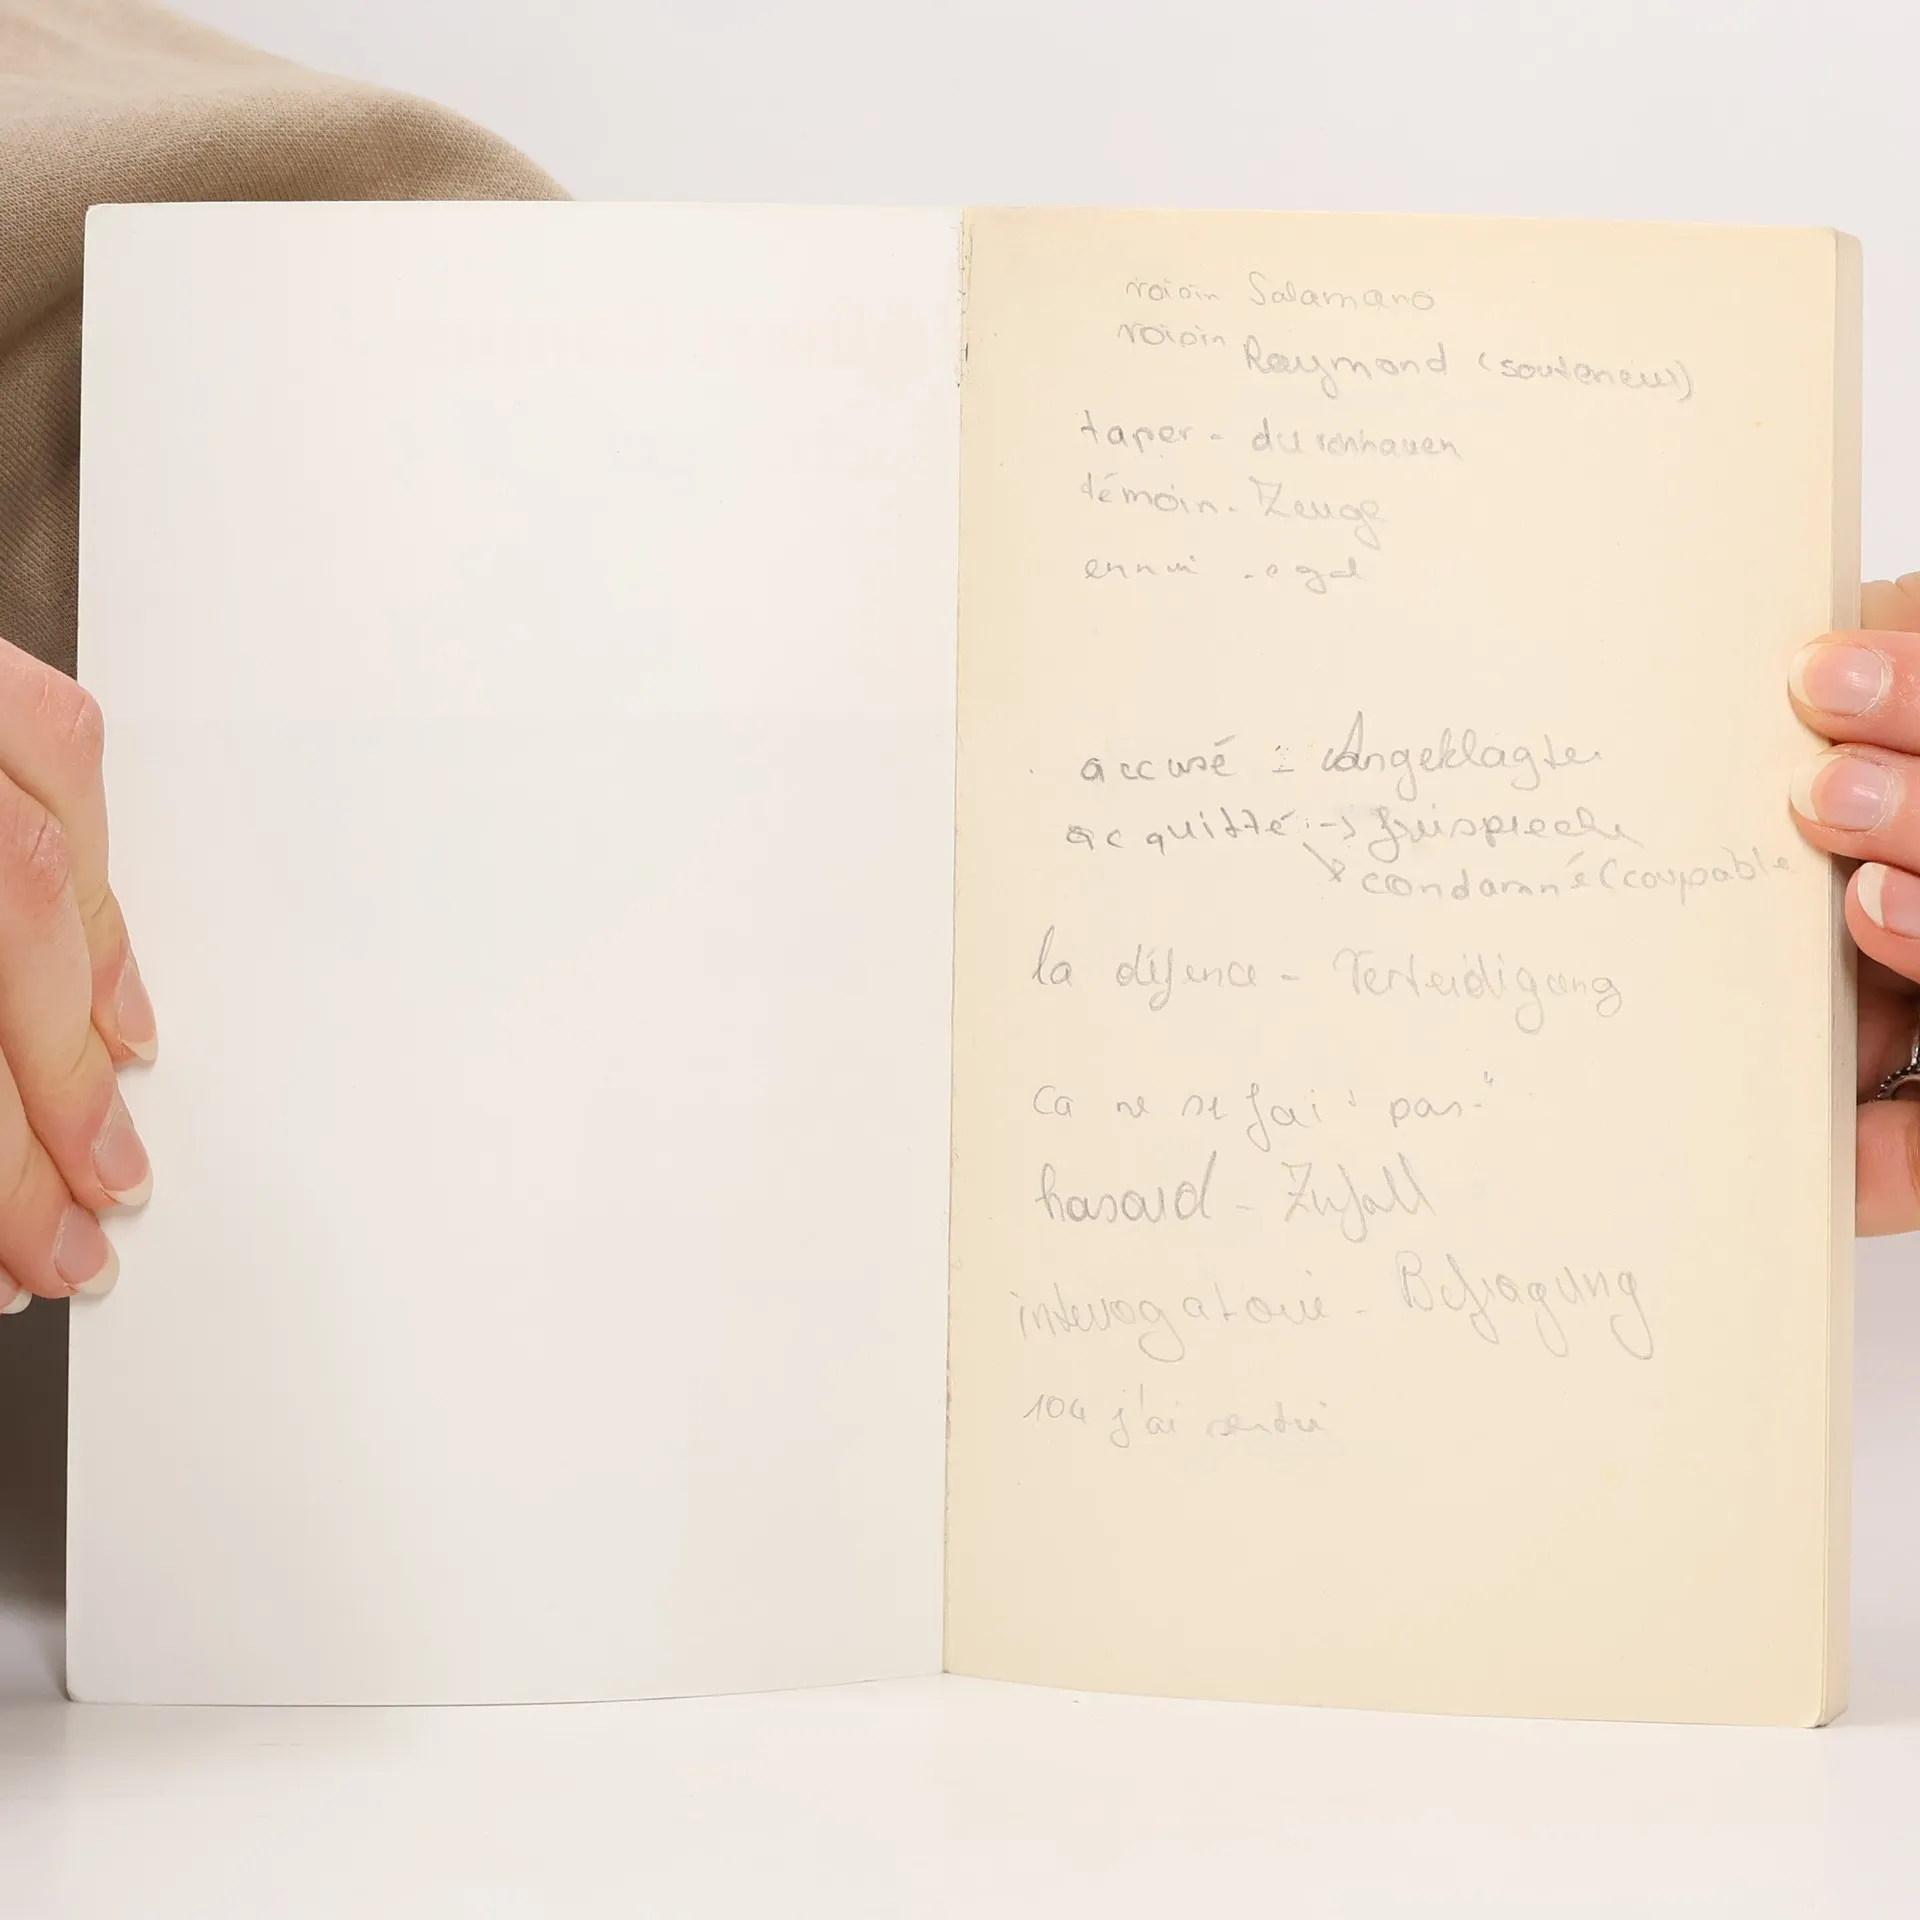 voisin Salamano
voisin Raymond (souteneur)
taper - durchhauen
témoin - Zeuge
ennui - egal
accusé = Angeklagter
acquitté → freisprechen
condamné (coupable
la défence - Verteidigung
ca ne se fait pas."
hasard - Zufall
interrogatoire - Befragung
104 j'ai